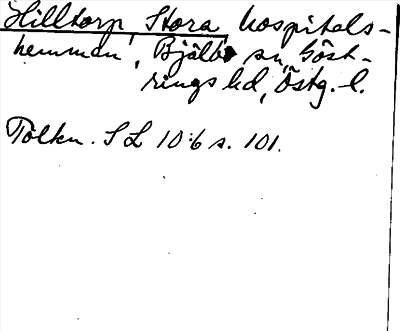 Hilltorp, Stora hospitals-
hemman, Bjälbo sn, Göst-
rings hd, Östg. l.
Tolkn. SL 10:6 s. 101.